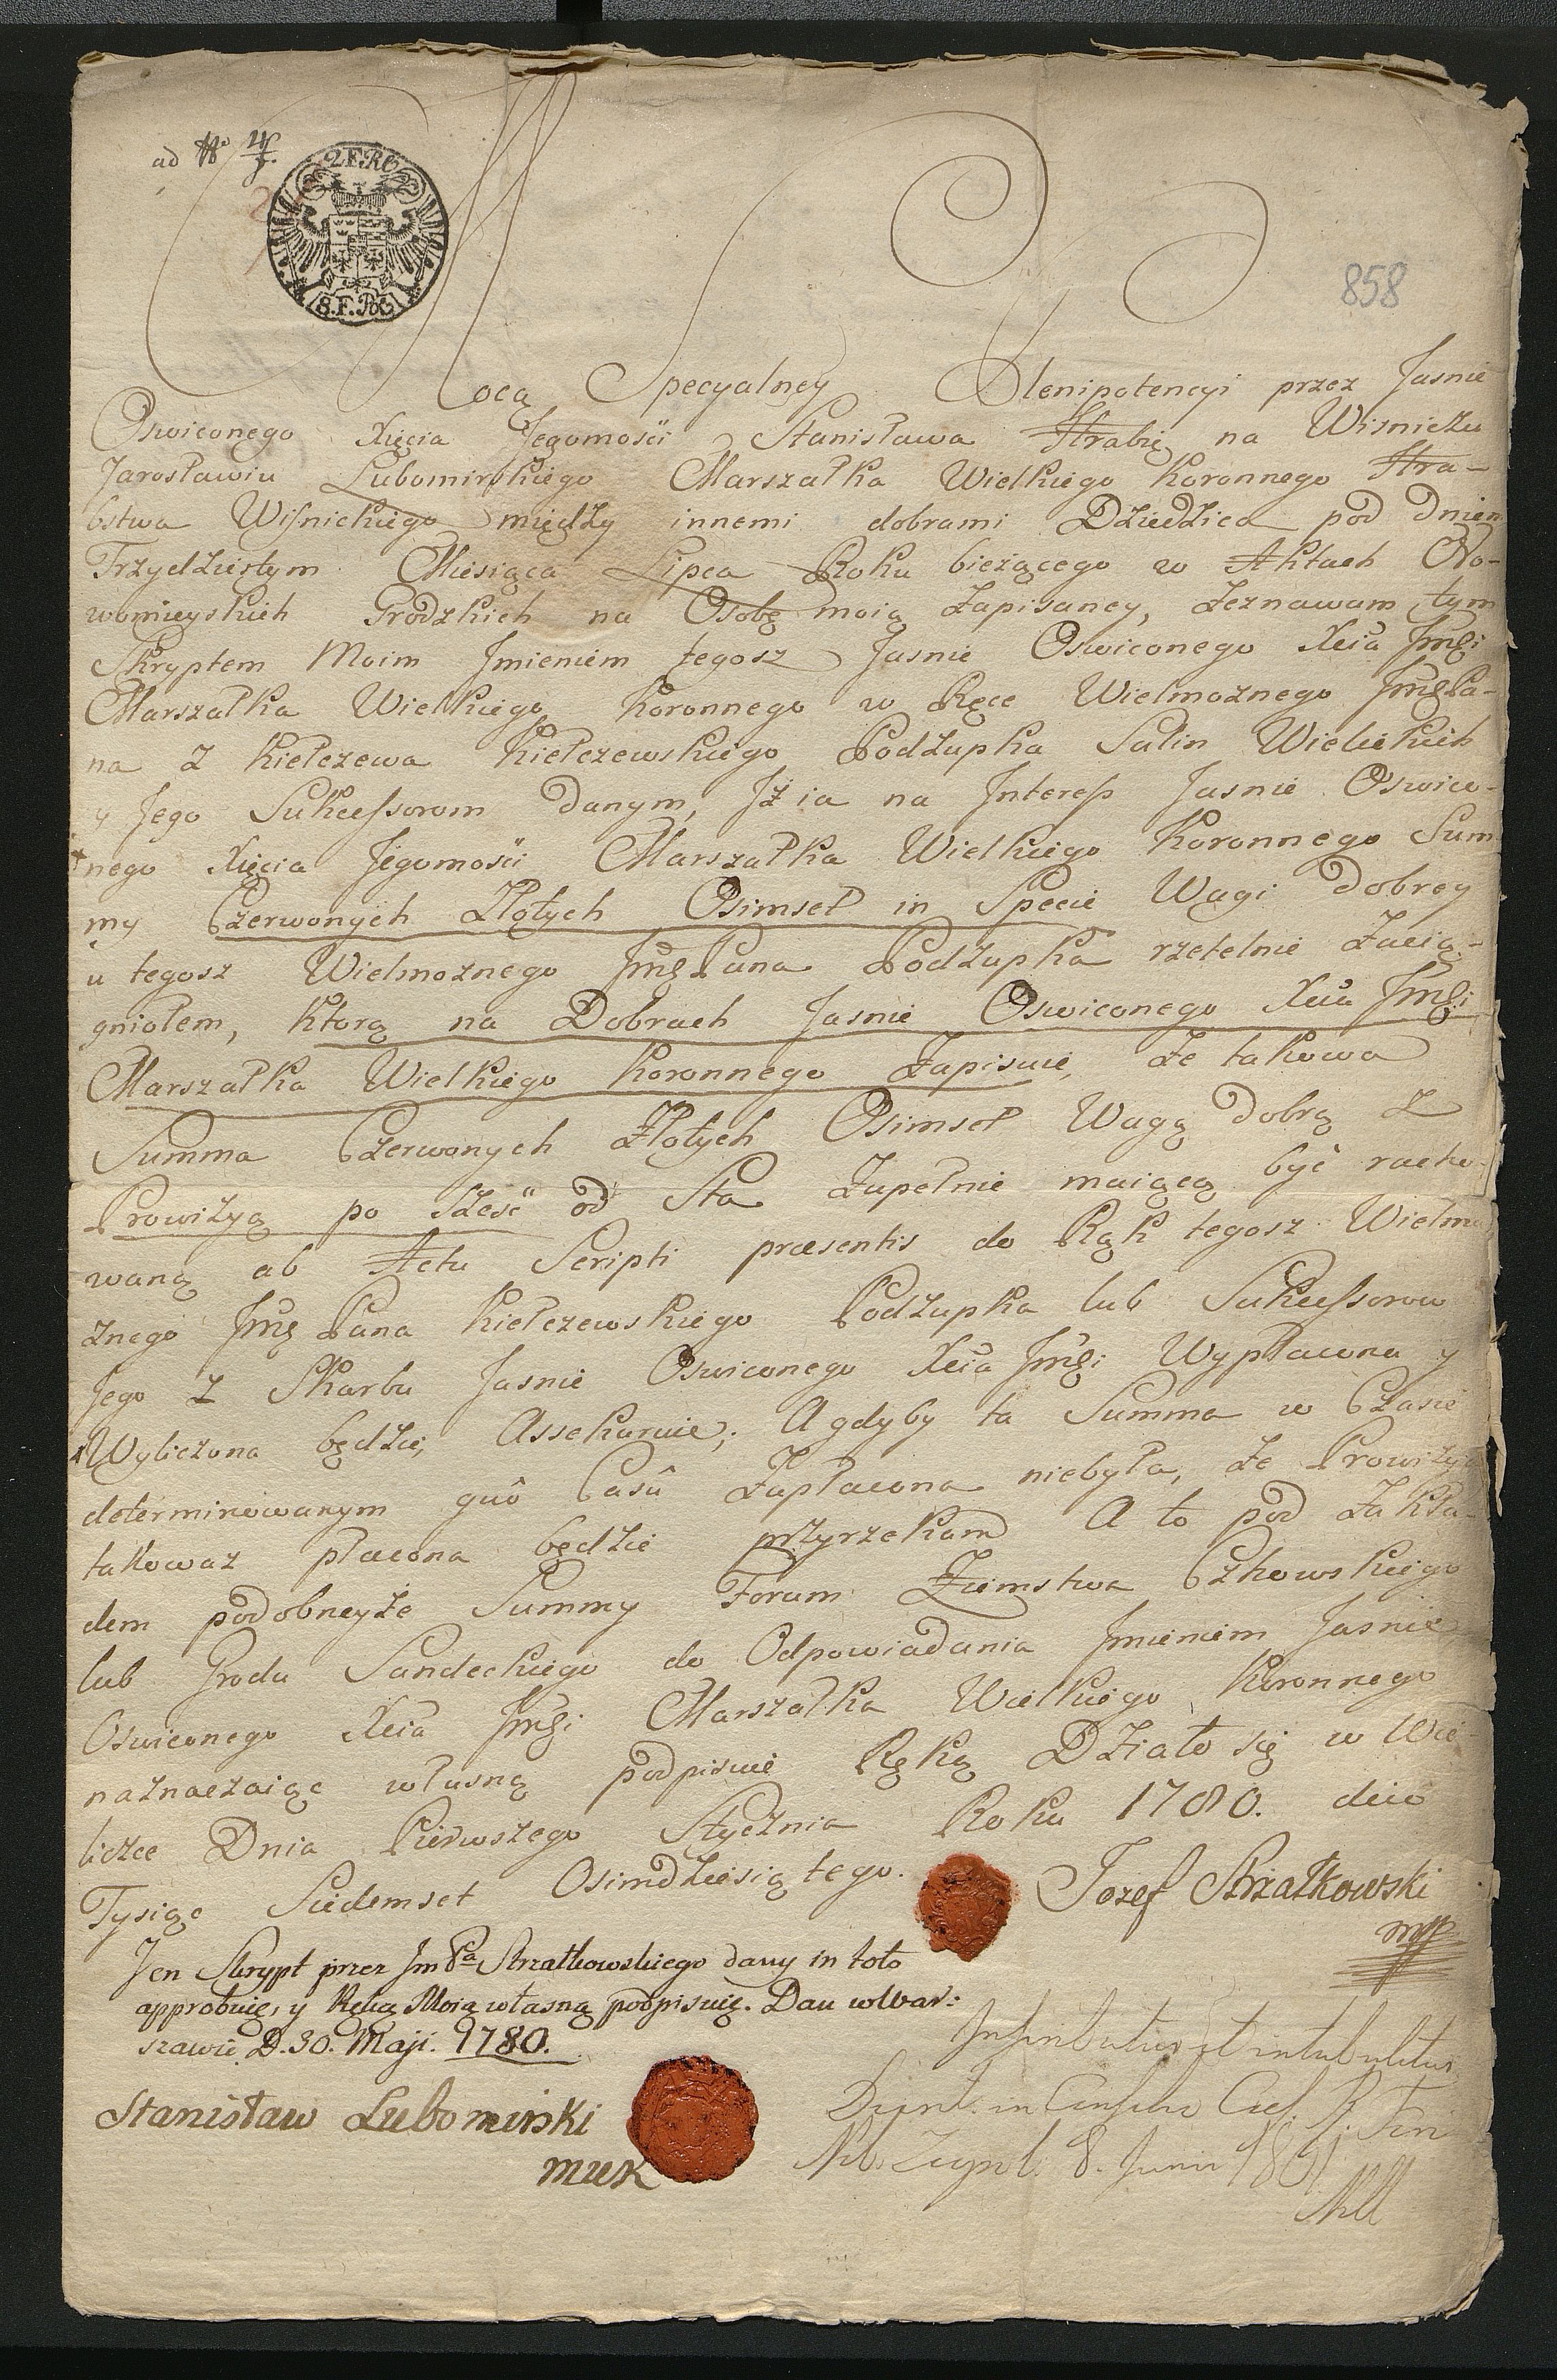 ad No 4/f.
2 F. Rh
8. F. Rh
858
Mocą Specyalney Plenipotencyi przez Jasnie
Oswieconego Xięcia Jegomosci Stanisława Hrabię na Wisniczu
Jarosławiu Lubomirskiego Marszałka Wielkiego Koronnego Hra-
bstwa Wisnickiego między innemi dobrami Dziedzica pod Dniem
Trzydziestym Miesiąca Lipca Roku bieżącego w Aktach No-
womieyskich Grodzkich na Osobę moią Zapisaney, Zeznawam tym
Skryptem Moim Jmieniem tegosz Jasnie Oswieconego Xcia Jmci
Marszałka Wielkiego Koronnego w Ręce Wielmożnego JmcPa-
na z Kiełczewa Kiełczewskiego Podżupka Salin Wielickich
y Jego Sukcessorom danym, Jż ia na Jnteress Jasnie Oswieco-
nego Xięcia Jegomości Marszałka Wielkiego Koronnego Sum-
my Czerwonych Złotych Osimset in Specie Wagi dobrey
u tegosz Wielmożnego Jmc Pana Podżupka rzetelnie Zacią-
gniołem, Ktorą na Dobrach Jasnie Oswieconego Xcia Jmci
Marszałka Wielkiego Koronnego Zapisuię, Ze takowa
Summa Czerwonych Złotych Osimset Wagą dobrą z
Prowizyą po sześć od Sta Zupełnie maiącą być racho-
waną ab Actu Scripti præsentis do Rąk tegosz Wielmo-
żnego Jmc Pana Kiełczewskiego Podżupka lub Sukcessorow
Jego z Skarbu Jasnie Oswieconego Xcia Jmci Wypłacona y
Wyliczona będzie, Assekuruię; A gdyby ta Summa w Czasie
determinowanym quô Casû Zapłacona niebyła, Ze Prowizya
takowaz płacona będzie przyrzekam A to pod Zakła-
dem podobneyże Summy Forum Ziemstwa Czhowskiego
lub Grodu Sandeckiego do Odpowiadania Jmieniem Jasnie
Oswieconego Xcia Jmci Marszałka Wielkiego Koronnego
naznaczaiąc własną podpisuię Ręką Działo się w Wie-
liczce Dnia Pierwszego Stycznia Roku 1780. dciô
Tysiąc Siedemset Osimdziesiątego.
Jozef Strzałkowski
mp
Ten Skrypt przez Jm Pa Strzałkowskiego dany in toto
approbuię, y Ręką Moią własną podpisuię. Dan w War:
szawie D. 30. Maji. 1780.
Stanisław Lubomirski
MWK
8. Junii 1801